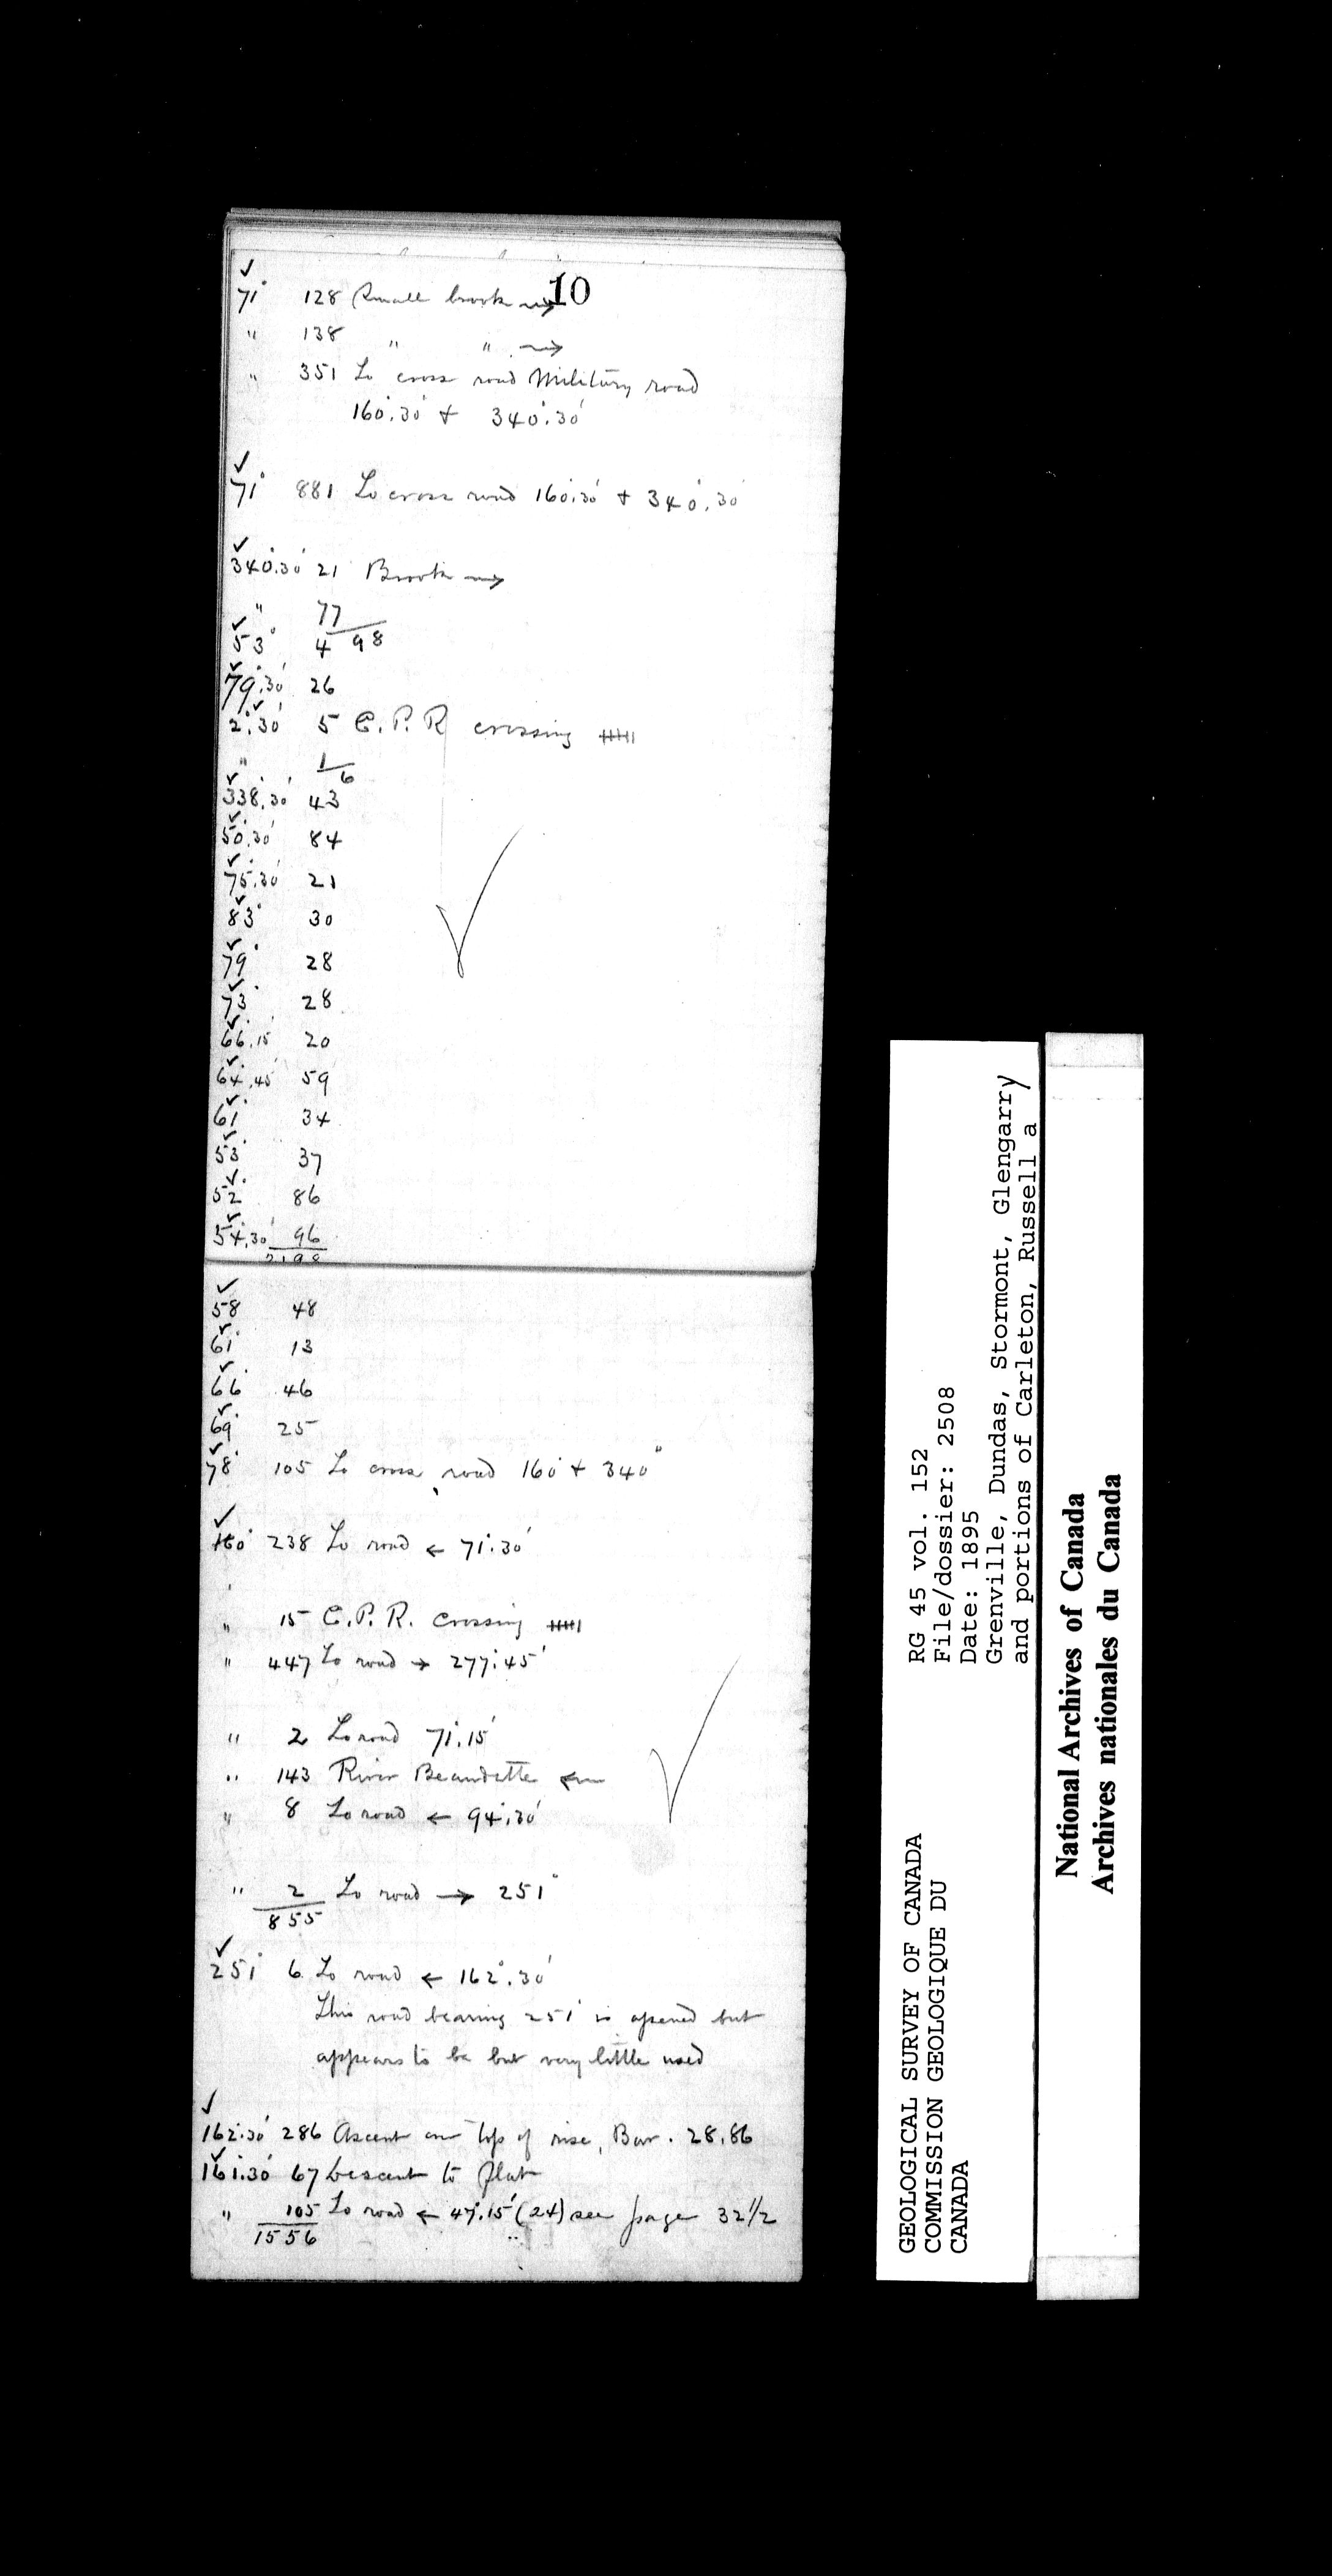 10
✓
71° 128 Small brook →
" 138 " " →
" 351 To cross road Military road
160°.30' + 340°.30'
✓
71° 881 To cross road 160°.30' + 340°.30'
✓
340°.30' 21 Brook →
" 77
✓ 98
53° 4
✓
79°.30' 26
✓
2°.30' 5 C.P.R crossing
" 1
✓ 6
338°.30' 43
✓
50°.30' 84
✓
75°.30' 21
✓
83° 30
✓
79° 28
✓
73° 28
✓
66°.15' 20
✓
64°.45' 59
✓
61° 34
✓
53° 37
✓
52° 86
✓
54°.30' 96
✓
58 48
✓
61° 13
✓
66° 46
✓
69° 25
✓
78° 105 To cross road 160° + 340°
✓
160° 238 To road ← 71°.30'
" 15 C.P.R. crossing
" 447 To road → 277°.45'
" 2 To road 71°.15'
" 143 River Beaudette ←
" 8 To road ← 94°.30'
" 2 To road → 251°
855
✓
251° 6 To road ← 162°.30'
This road bearing 251° is opened but
appears to be but very little used
✓
162°.30' 286 Ascent on top of rise, Bar. 28.86
✓
161°.30' 67 Descent to flat
" 105 To road ← 47°.15' (24) see page 32 1/2
1556
GEOLOGICAL SURVEY OF CANADA
COMMISSION GEOLOGIQUE DU
CANADA
RG 45 vol. 152
File/dossier: 2508
Date: 1895
Grenville, Dundas, Stormont, Glengarry
and portions of Carleton, Russell a
National Archives of Canada
Archives nationales du Canada